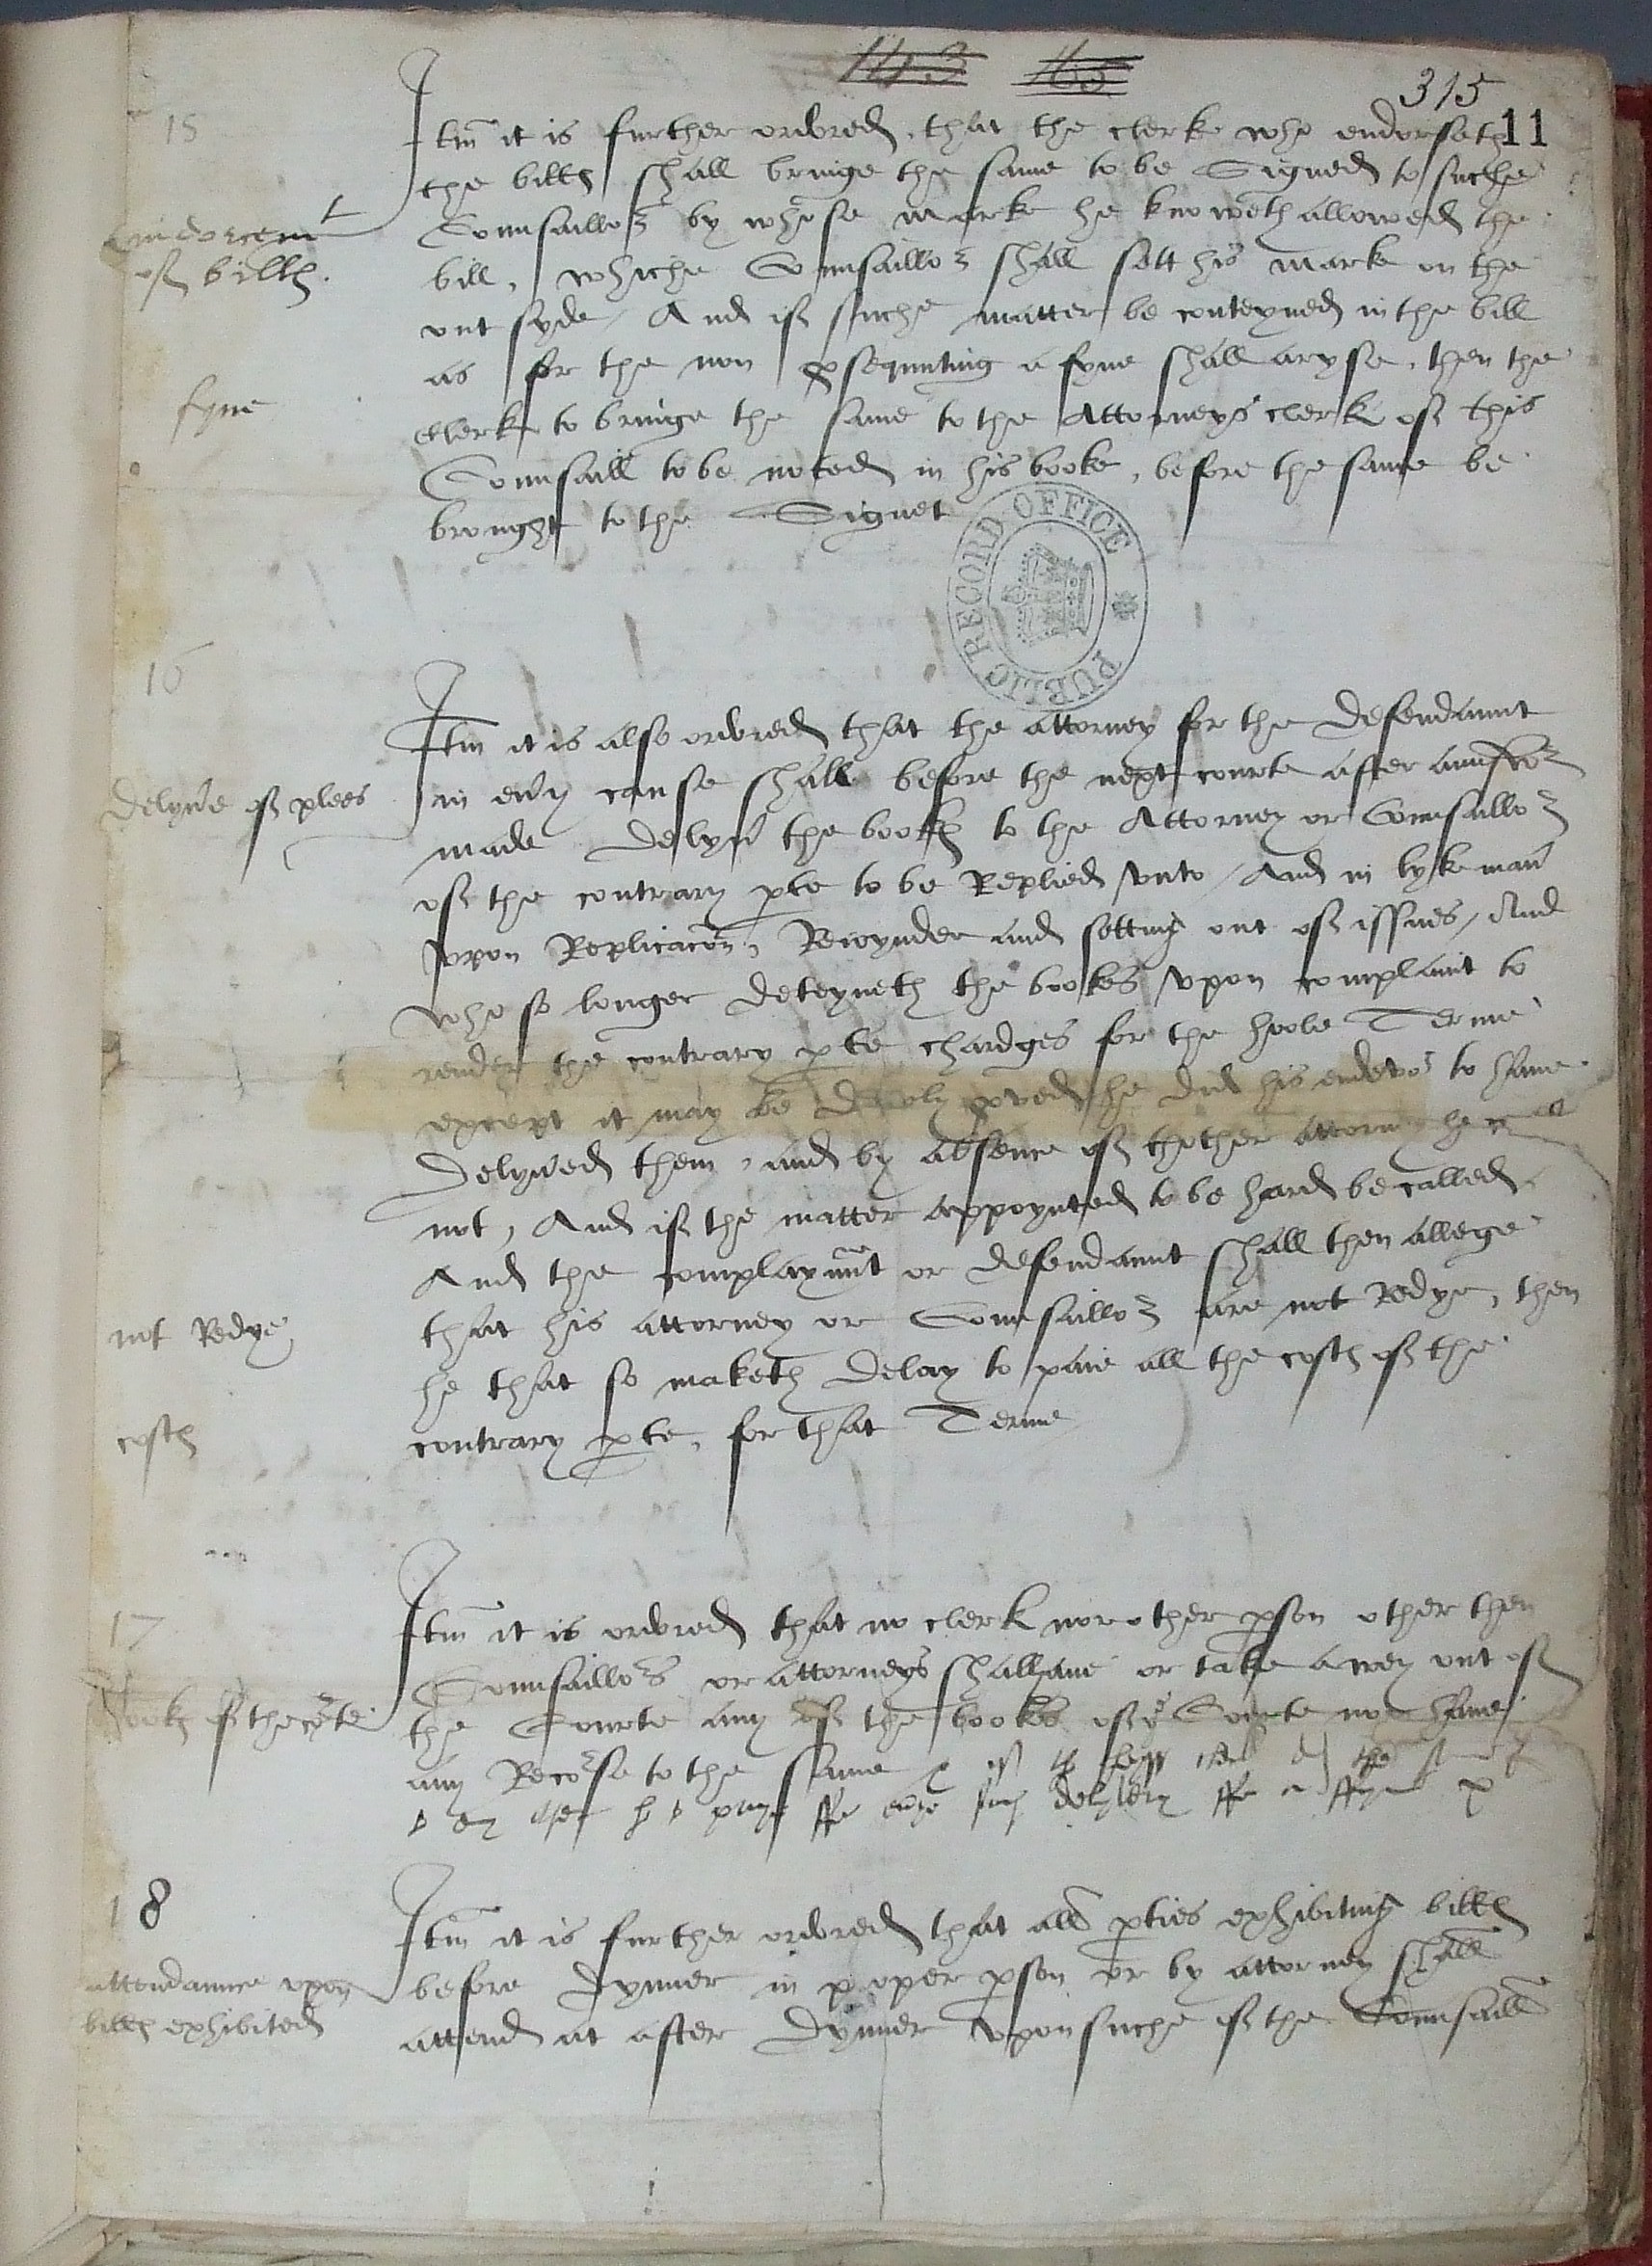 143 165
315
11
15
Itm it is further ordered, that the clerk who endorseth
the billes shall bringe the same to be Signed to suche
endorcemt
of billes.
Counsaillor by whose marke he knoweth allowed the
bill, whiche Counsaillor shall sett his marke on the
out syde / And if suche matter be conteyned in the bill
as for the non psequuting a fyne shall aryse, then the
fyne
clerk to bringe the same to the Attorneys clerk of this
Counsaill to be noted in his booke, before the same be
brought to the Signet
PUBLIC RECORD OFFICE
16
Itm it is also ordered that the attorney for the defendaunt
delyve of plees
in evy cause shall before the next courte after aunswor
made delyv the bookes to the Attorney or Counsaillor
of the contrary pte to be Replied vnto / And in lyke man
vpon Replicacon, Reioynder and setting out of issues / And
who so longer deteyneth the bookes vpon complaint to
render the contrary pte chardges for the hoole Terme
except it may be duely pved he did his endevor to have
delyved them, and by absence of thother attorney he
not, And if the matter appoynted to be hard be called
And the complaynnt or defendaunt shall then allege
that his attorney or Counsaillor are not Redye, then
not Redye
he that so maketh delay to paie all the costes of the
costes
contrary pte, for that Terme
17
Itm it is ordered that no clerk nor other pson other then
Counsaillors or attorneys shall have or take awey out of
bookes of the corte
the Courte any of the bookes of ye Courte nor have
any Recorse to the same
delyvery
18
Itm it is further ordered that all pties exhibiting billes
attendaunce vpon
billes exhibited
before dynner in proper pson or by attorney shall
attend at after dynner vpon suche of the Counsaill